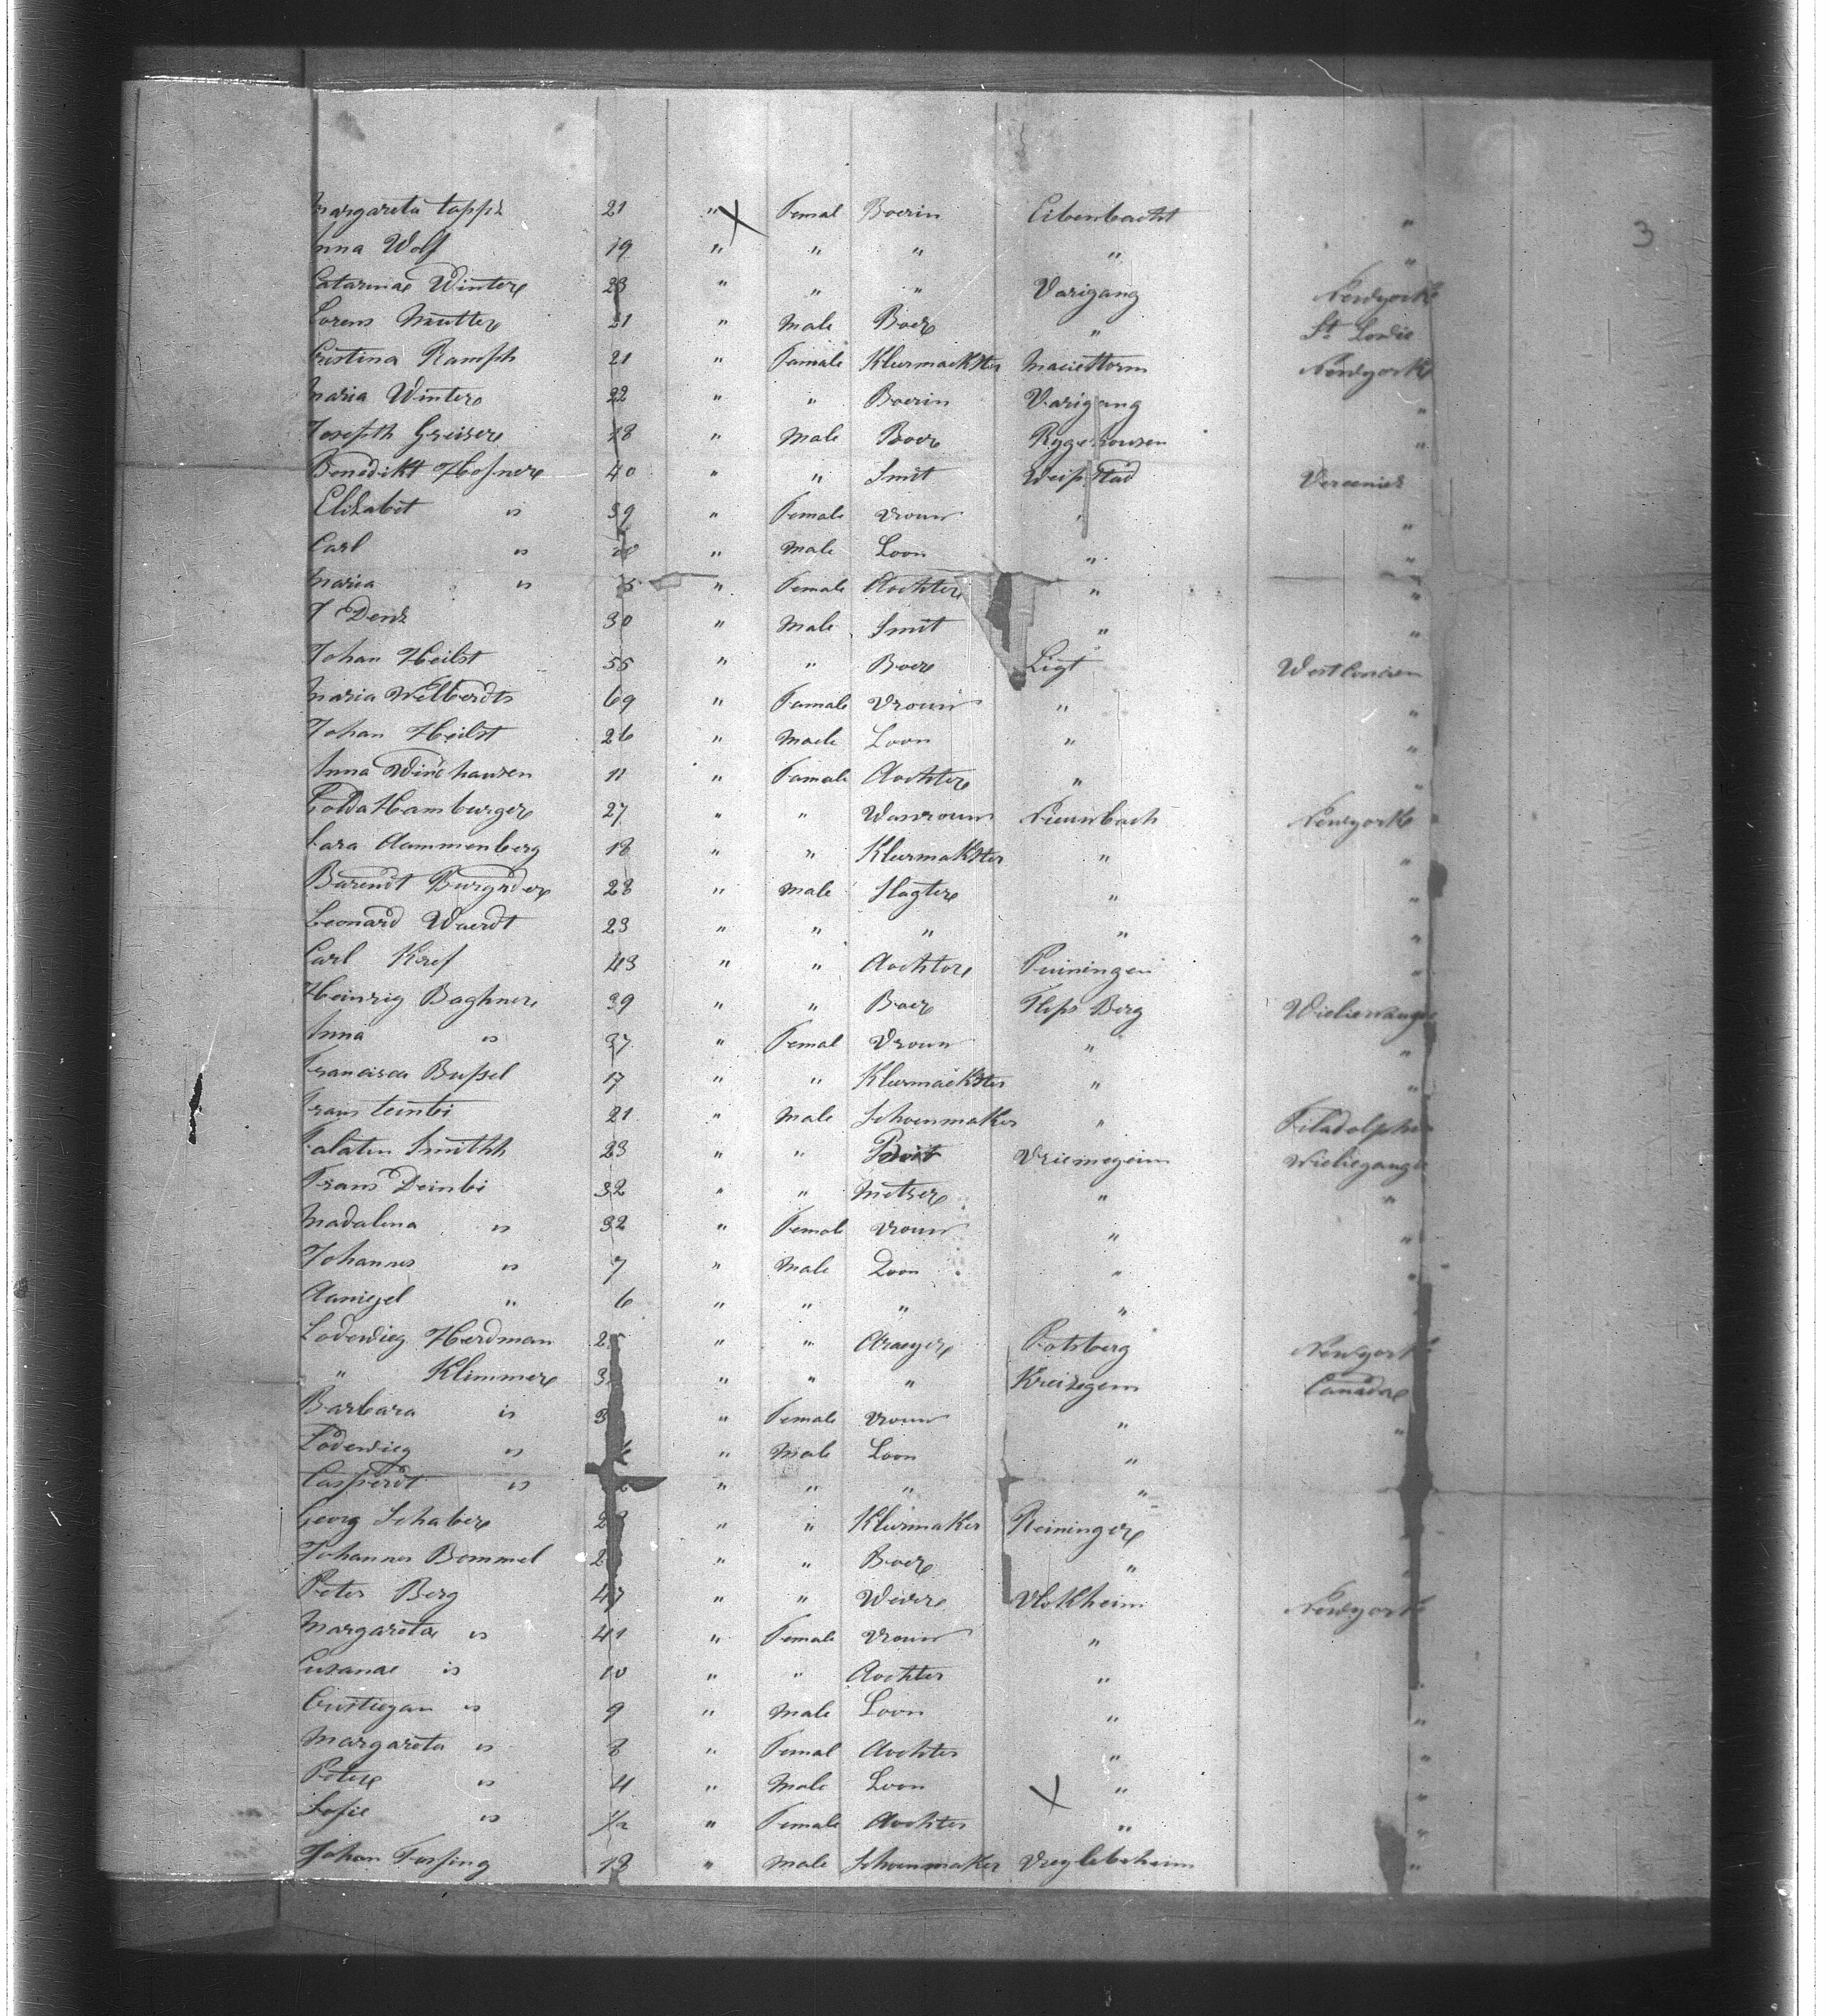 3
Margareta Topps 21 " Femal Boerin Eibenbacht "
Anna Wolf 19 " " " " "
Catarinae Winter 23 " " " Varigang Newyork
Lorens Mutter 21 " Male Boer " St Lowie
Cristina Ramph 21 " Famale Kleermackster Newyork
Maria Winter 22 " " Boerin Varigang "
Joseph Greiser 18 " Male Boer Rygehousen "
Benedikt Hofner 40 " " Smit Weisstad
Elizabet is 39 " Female Vrouw " "
Carl is " Male Zoon " "
Maria is " Female Dochter " "
J Denz 30 " Male Smit " "
Johan Heilst 55 " " Boer Ligt
Maria Welberdts 69 " Famale Vrouw " "
Johan Heilst 26 " Maele Zoon " "
Anna Windhausen 11 " Famale Dochter " "
Golda Hamburger 27 " " Newyork
Sara Dammenberg 18 " " Kleermakster " "
Barendt Burgrder 28 " Male Slagter " "
Leonard Waerdt 23 " " " " "
Carl Kref 43 " " Dochter "
Heinrig Baghner 39 " " Boer Berg
Anna is 37 " Femal Vrouw " "
Francisca Bussel 17 " " Kleermaekster " "
Frans 21 " Male Schoenmaker " Filadolphia
Falatin Smithh 23 " " Vriemegeim
Frans Deinbi 32 " " Metser " "
Madalena is 32 " Female Vrouw " "
Johannes is 7 " Male Zoon " "
Daniegel " 6 " " " "
Lodewieg Herdman " " Draeyer Rotsberg Newyork
" Klimmer " " " Kreizegem Canada
Barbara is " Female Vrouw " "
Lodewieg is " Male Zoon "
Casperdt is " " " "
Georg Schaber " " Kleermaker Reininger
Johannes Bommel " " Boer " "
Peter Berg 47 " " Wever Vlokheim Newyork
Margareta is 41 " Female Vrouw "
Susanae is 10 " " Dochter "
Cristiegan is 9 " Male Zoon " "
Margareta is 8 " Femal Dochter " "
Peter is 4 " Male Zoon " "
Sofie is 1/2 " Female Dochter " "
Johan Fossing 18 " Male Schoenmaker "